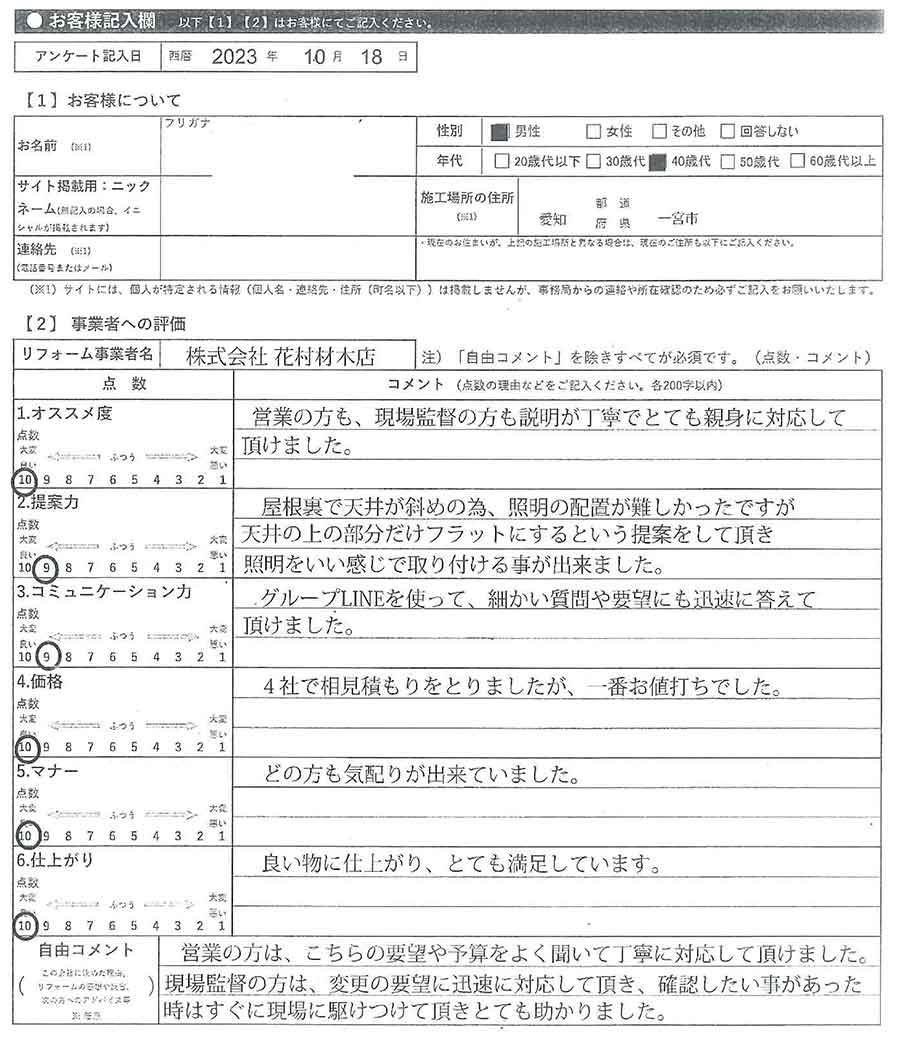 ● お客様記入欄 以下【1】【2】はお客様にてご記入ください。
アンケート記入日 西暦 2023 年 10 月 18 日
【1】お客様について
お名前 (※1)
フリガナ
性別 ■男性 □女性 □その他 □回答しない
年代 □20歳代以下 □30歳代 ■40歳代 □50歳代 □60歳代以上
サイト掲載用：ニック
ネーム(無記入の場合、イニ
シャルが掲載されます)
施工場所の住所
(※1)
愛知 都 道 府 県 一宮市
連絡先 (※1)
(電話番号またはメール)
・現在のお住まいが、上記の施工場所と異なる場合は、現在のご住所も以下にご記入ください。
(※1) サイトには、個人が特定される情報（個人名・連絡先・住所（町名以下））は掲載しませんが、事務局からの連絡や所在確認のため必ずご記入をお願いいたします。
【2】事業者への評価
リフォーム事業者名 株式会社 花村材木店 注）「自由コメント」を除きすべてが必須です。（点数・コメント）
点 数 コメント（点数の理由などをご記入ください。各200字以内）
1.オススメ度
点数
大変 ふつう 大変
良い 悪い
10 9 8 7 6 5 4 3 2 1
営業の方も、現場監督の方も説明が丁寧でとても親身に対応して
頂けました。
2.提案力
点数
大変 ふつう 大変
良い 悪い
10 9 8 7 6 5 4 3 2 1
屋根裏で天井が斜めの為、照明の配置が難しかったですが
天井の上の部分だけフラットにするという提案をして頂き
照明をいい感じで取り付ける事が出来ました。
3.コミュニケーション力
点数
大変 ふつう 大変
良い 悪い
10 9 8 7 6 5 4 3 2 1
グループLINEを使って、細かい質問や要望にも迅速に答えて
頂けました。
4.価格
点数
大変 ふつう 大変
良い 悪い
10 9 8 7 6 5 4 3 2 1
４社で相見積もりをとりましたが、一番お値打ちでした。
5.マナー
点数
大変 ふつう 大変
悪い
10 9 8 7 6 5 4 3 2 1
どの方も気配りが出来ていました。
6.仕上がり
点数
大変 ふつう 大変
悪い
10 9 8 7 6 5 4 3 2 1
良い物に仕上がり、とても満足しています。
自由コメント
この会社に決めた理由、
リフォームの感想や談話、
次の方へのアドバイス等
※任意
営業の方は、こちらの要望や予算をよく聞いて丁寧に対応して頂けました。
現場監督の方は、変更の要望に迅速に対応して頂き、確認したい事があった
時はすぐに現場に駆けつけて頂きとても助かりました。